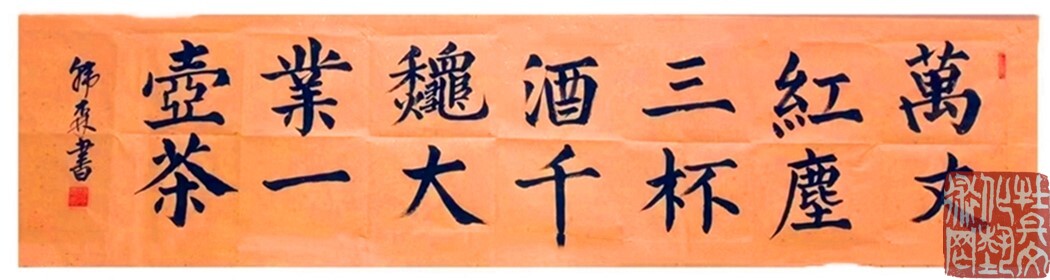 萬丈
紅塵
三杯
酒千
龝大
業一
壺茶
書